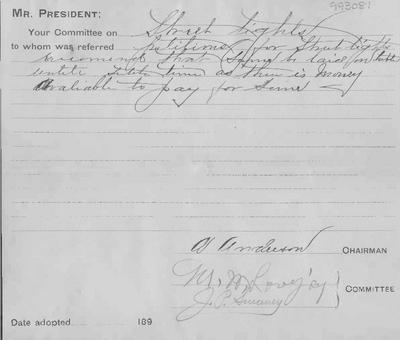 993081
MR. PRESIDENT;
Your Committee on Street Lights
to whom was referred petitions for Street lights
recomend that Same be laid on table
untill Such time as there is money
Avaliable to pay for Same
A Anderson CHAIRMAN
M. M. Lovejoy
COMMITTEE
J. P. Sweeney
Date adopted 189